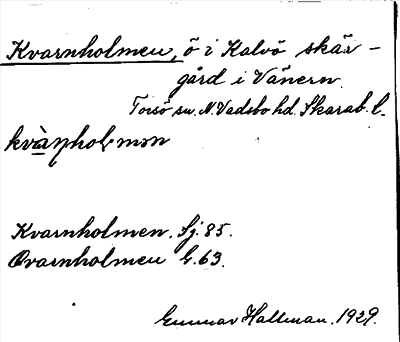 Kvarnholmen, ö i Kalvö skär-
gård i Vänern.
Torsö sn. N. Vadsbo hd. Skarab. l.
Kvarnholmen. Sj. 85.
Qvarnholmen G. 63.
Gunnar Hallman. 1929.